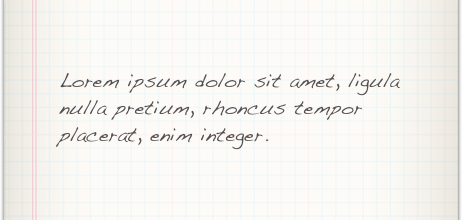 Lorem ipsum dolor sit amet, ligula
nulla pretium, rhoncus tempor
placerat, enim integer.